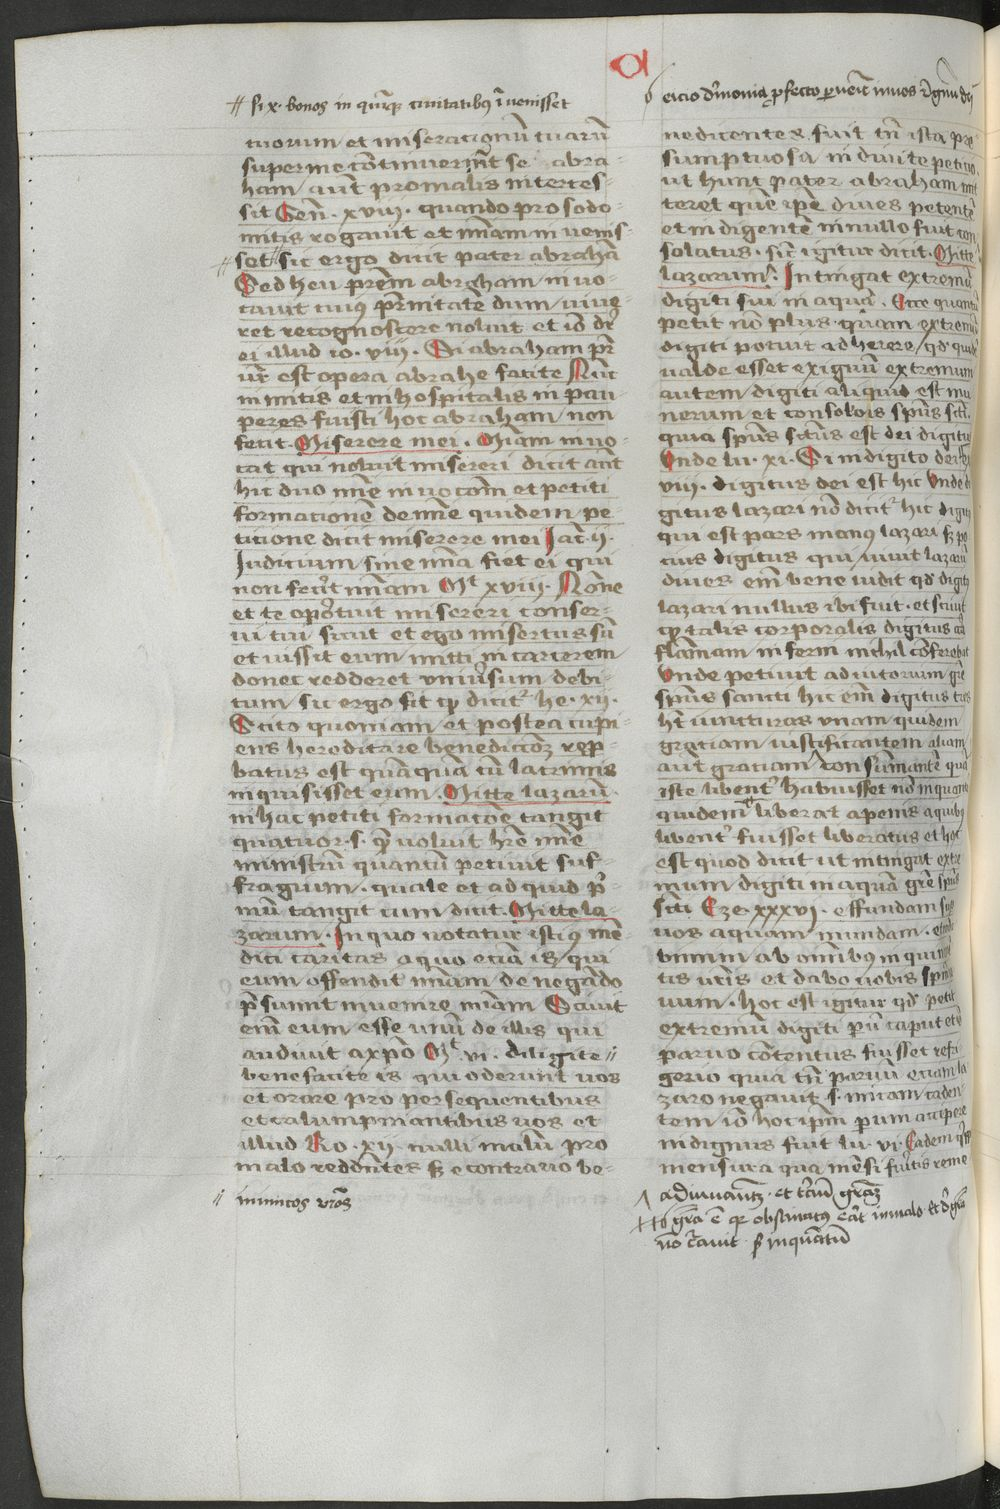 a
// si x. bonos in quinque civitatibus invenisset
tuorum et miseracionum tuarum
super me continuerunt se abra-
ham autem pro malis interces-
sit Gen. xviii. quando pro sodo-
mitis rogavit et misericordiam invenis-
set // sic ergo dicit pater abraham
Sed heu patrem abraham invo-
cavit cuius paternitatem dum vive-
ret recognoscere noluit et ideo dicitur
ei illud io. viii. Si abraham pater
vester est opera abrahe facite Nunc
inmitis et inhospitalis in pau-
peres fuisti hoc abraham non
fecit. Miserere mei. Misericordiam invo-
cat qui noluit misereri dicit autem
hic duo
formacionem de misericordie quidem pe-
ticione dicit miserere mei Jac. ii.
Judicium sine misericordia fiet ei qui
non fecerit misericordiam Mt xviii. Nonne
et te oportuit misereri conser-
vi tui sicut et ego misertus sum
et iussit eum mitti in carcerem
donec redderet universum debi-
tum sic ergo fit quod dicitur he. xii.
Scito quoniam et postea cupi-
ens hereditare benedictionem repro-
batus est quamquam cum lacrimis
inquisisset eum. Mitte lazarum.
in hac petiti formacione tangit
quatuor. s. quem voluit habere misericordie
ministrum quantum petivit suf-
fragium. quale et ad quid pri-
mum tangit cum dicit. Mitte la-
zarum. In quo notatur istius men-
dici caritas a quo eciam is qui
eum offendit misericordiam denegando
presumit invenire misericordiam Scivit
enim eum esse unum de illis qui
audivit a christo Mt. vi. diligite //
benefacite is qui oderunt vos
et orare pro persequentibus
et calumpniantibus vos et
illud Ro. xii. nulli malum pro
malo reddentes sed e contrario be-
// inimicos vestros
eicio demonia profecto pervenit in vos regnum dei
nedicentes. fuit tamen ista pre-
sumptuosa in divite peticio
ut hunc pater abraham mit-
teret quem ipse dives petentem
et indigentem in nullo fuit con-
solatus. sic igitur dicit. Mitte
lazarum. Intingat extremum
digiti sui in aquam. Ecce quantum
petit non plus. quam extremum
digiti potuit adherere quod quidem
valde esset exiguum extremum
autem digiti aliquid est mu-
nerum et consolacionis spiritus sancti.
quia spiritus sanctus est dei digitus
Unde lu. xi. Si in digito dei
viii. digitus dei est hic Unde di-
gitus lazari non dicitur hic digitus
qui est pars manus lazari sed po-
cius digitus qui vivit lazarum
dives enim bene vidit quod digitus
lazari nullus ibi fuit. et scivit
quod talis corporalis digitus ad
flammam inferni nichil conferebat
Unde petivit adiutorium gratie
spiritus sancti hic enim digitus tres
habet iuncturas unam quidem
graciam iustificantem aliam
aut graciam consummantem quam
iste libenter habuisset non in quantum
quidem liberat a penis a quibus
libenter fuisset liberatus et hoc
est quod dicit ut intingat extre-
mum digiti in aquam gratie spiritus
sancti Eze. xxxvi. effundam super
vos aquam mundam. et
bimini ab omnibus inquinamen-
tis vestris et dabo vobis spiritum
uum. hoc est igitur quod petit
extremum digiti
parvo contentus fuisset refri-
gerio quia tamen parvum eciam la-
zaro negavit s. micam caden-
tem ideo hoc ipsum parum accipere
indignus fuit lu. vi. Eadem quippe
mensura qua mensi fueritis reme
adiuvantem. et terciam graciam